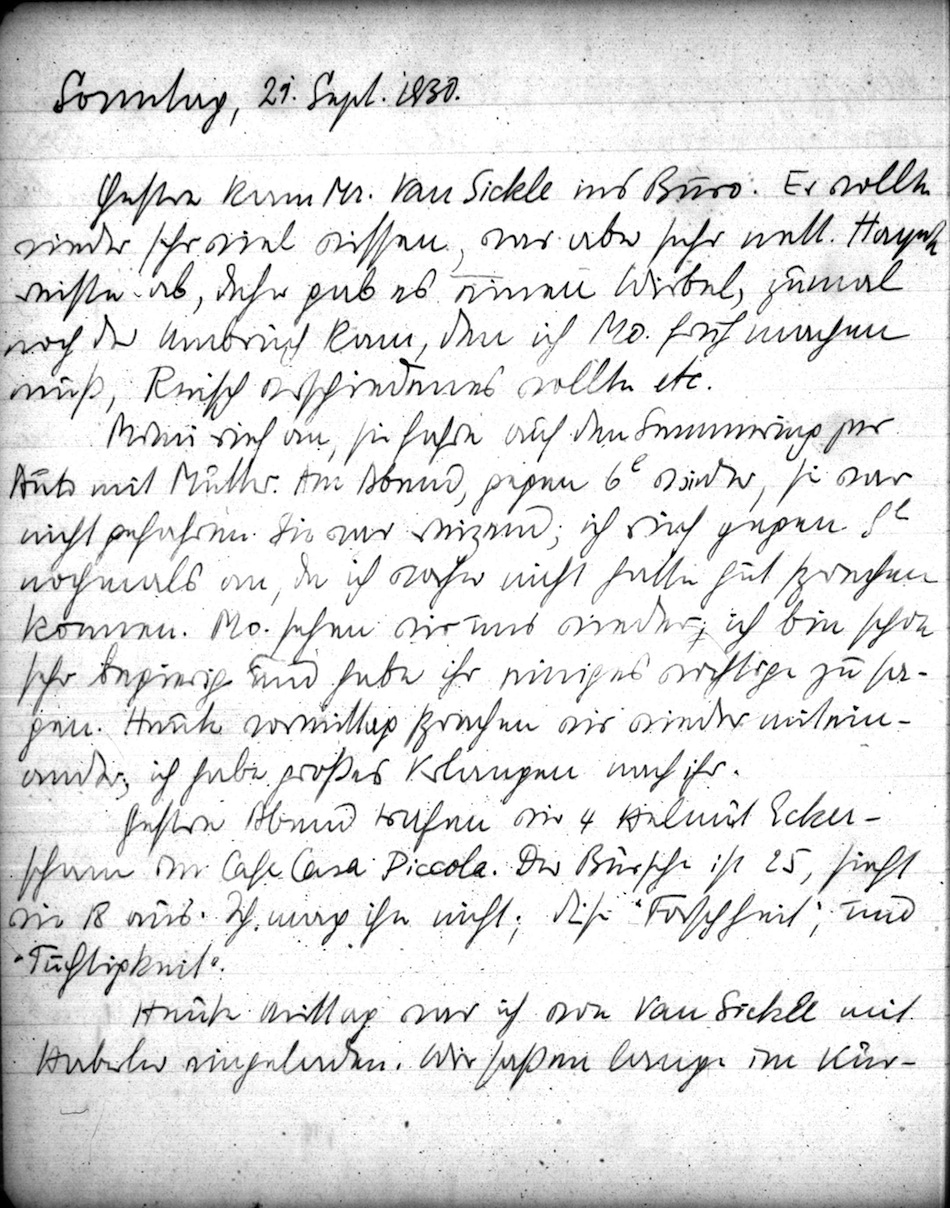 Sonntag, 21. Sept. 1930.
Gestern kam Mr. Van Sickle ins Büro. Er wollte
wieder sehr viel wissen, war aber sehr nett. Hayek
reiste ab, daher gab es einen Wirbel, zumal
noch der Umbruch kam, den ich Mo. früh machen
muß, Reisch verschiedenes wollte etc.
Mimi rief an, sie fahre auf den Semmering per
Auto mit Müller. Am Abend, gegen 6h wieder, sie war
nicht gefahren. Sie war reizend; ich rief gegen 8h
nochmals an, da ich vorher nicht hatte gut sprechen
können. Mo. sehen wir uns wieder, ich bin schon
sehr begierig und habe ihr einiges wichtige zu sa-
gen. Heute vormittag sprachen wir wieder mitein-
ander, ich habe großes Verlangen nach ihr.
Gestern Abend trafen wir 4 Helmut Ecker-
im Cafe Casa Piccola. Der Bursche ist 25, sieht
wie 18 aus. Ich mag ihn nicht; diese "Forschheit", und
"Tüchtigkeit".
Heute Mittag war ich von Van Sickle mit
Haberler eingeladen. Wir saßen lange im Kur-